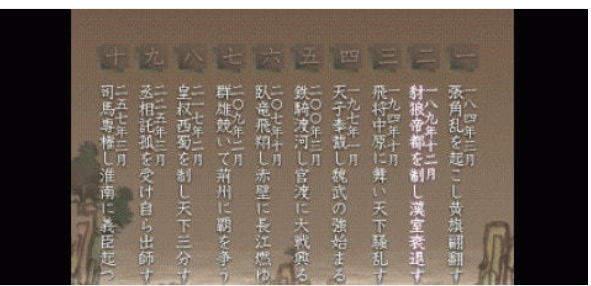 一
一八四年三月
張角乱を起こし黄旗翩翻す
二
一八九年十二月
豺狼帝都を制し漢室衰退す
三
一九四年十月
飛将中原に舞い天下騒乱す
四
一九七年一月
天子奉戴し魏武の強始まる
五
二〇〇年三月
鉄騎渡河し官渡に大戦興る
六
二〇七年十月
臥竜飛翔し赤壁に長江燃ゆ
七
二〇九年二月
群雄競いて荊州に覇を争う
八
二一七年二月
皇叔西蜀を制し天下三分す
九
二二五年三月
丞相託孤を受け自ら出師す
十
二五七年三月
司馬専権し淮南に義臣起つ